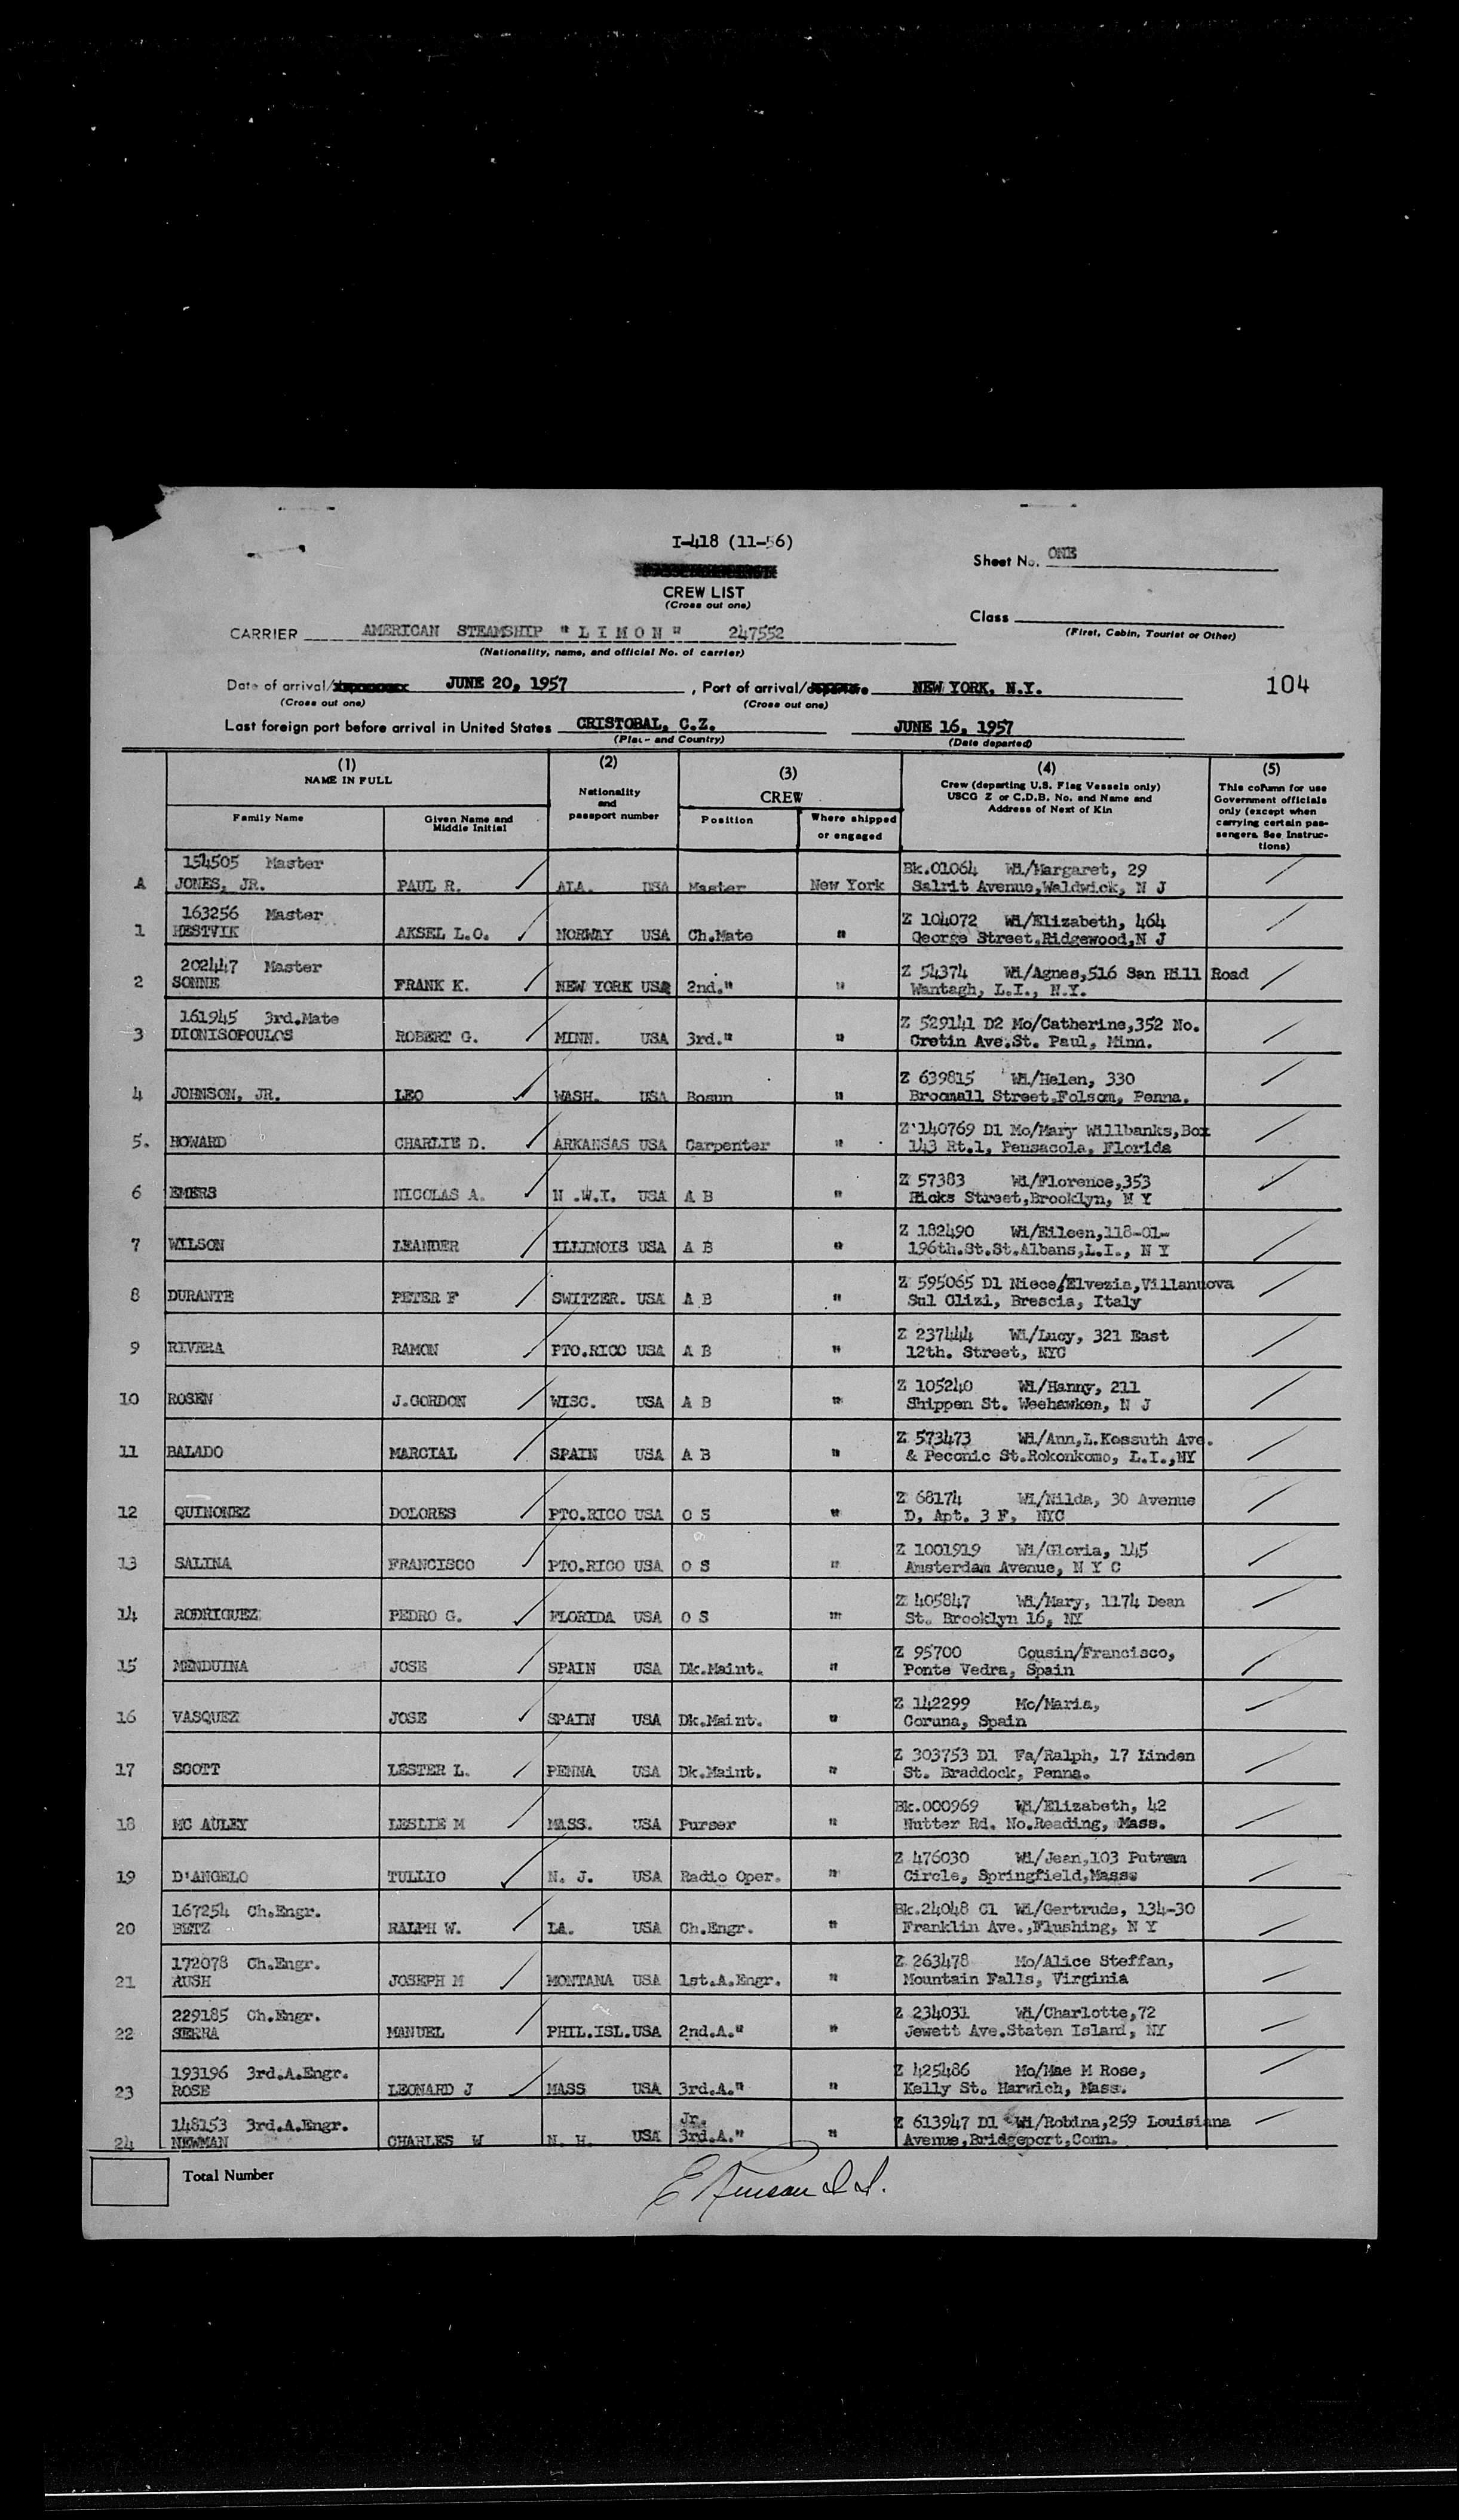 I-418 (11-56)
Sheet No. ONE
CREW LIST
(Cross out one)
Class
(First, Cabin, Tourist or Other)
CARRIER AMERICAN STEAMSHIP "L I M O N" 247552
(Nationality, name, and official No. of carrier)
Date of arrival/ JUNE 20, 1957, Port of arrival/departure NEW YORK, N.Y. 104
(Cross out one) (Cross out one)
Last foreign port before arrival in United States CRISTOBAL, C.Z. JUNE 16, 1957
(Place and Country) (Date departed)
(1) NAME IN FULL
Family Name
Given Name and Middle Initial
(2) Nationality and passport number
(3) CREW
Position
Where shipped or engaged
(4) Crew (departing U.S. Flag Vessels only) USCG Z or C.D.B. No. and Name and Address of Next of Kin
(5) This column for use Government officials only (except when carrying certain passengers. See Instructions)
154505 Master Bk.01064 Wi/Margaret, 29
A JONES, JR. PAUL R. ALA. USA Master New York Salrit Avenue,Waldwick, N J
163256 Master Z 104072 Wi/Elizabeth, 464
1 HESTVIK AKSEL L.O. NORWAY USA Ch.Mate " George Street,Ridgewood,N J
202447 Master Z 54374 Wi/Agnes,516 San Hill Road
2 SONNE FRANK K. NEW YORK USA 2nd." " Wantagh, L.I., N.Y.
161945 3rd.Mate Z 529141 D2 Mo/Catherine,352 No.
3 DIONISOPOULOS ROBERT G. MINN. USA 3rd." " Cretin Ave.St. Paul, Minn.
Z 639815 Wi/Helen, 330
4 JOHNSON, JR. LEO WASH. USA Bosun " Broomall Street,Folsom, Penna.
Z 140769 D1 Mo/Mary Willbanks,Box
5. HOWARD CHARLIE D. ARKANSAS USA Carpenter " 143 Rt.1, Pensacola, Florida
Z 57383 Wi/Florence,353
6 EMERS NICOLAS A. N .W.I. USA A B " Hicks Street,Brooklyn, N Y
Z 182490 Wi/Eileen,118-01-
7 WILSON LEANDER ILLINOIS USA A B " 196th.St.St.Albans,L.I., N Y
Z 595065 D1 Niece/Elvezia,Villanuova
8 DURANTE PETER F SWITZER. USA A B " Sul Clizi, Brescia, Italy
Z 237444 Wi/Lucy, 321 East
9 RIVERA RAMON PTO.RICO USA A B " 12th. Street, NYC
Z 105240 Wi/Hanny, 211
10 ROSEN J.GORDON WISC. USA A B " Shippen St. Weehawken, N J
Z 573473 Wi/Ann,L.Kossuth Ave.
11 BALADO MARCIAL SPAIN USA A B " & Peconic St.Rokonkomo, L.I.,NY
Z 68174 Wi/Nilda, 30 Avenue
12 QUINONEZ DOLORES PTO.RICO USA O S " D, Apt. 3 F, NYC
Z 1001919 Wi/Gloria, 145
13 SALINA FRANCISCO PTO.RICO USA O S " Amsterdam Avenue, N Y C
Z 405847 Wi/Mary, 1174 Dean
14 RODRIGUEZ PEDRO G. FLORIDA USA O S " St. Brooklyn 16, NY
Z 95700 Cousin/Francisco,
15 MENDUINA JOSE SPAIN USA Dk.Maint. " Ponte Vedra, Spain
Z 142299 Mo/Maria,
16 VASQUEZ JOSE SPAIN USA Dk.Maint. " Coruna, Spain
Z 303753 D1 Fa/Ralph, 17 Linden
17 SCOTT LESTER L. PENNA USA Dk.Maint. " St. Braddock, Penna.
Bk.000969 Wi/Elizabeth, 42
18 MC AULEY LESLIE M MASS. USA Purser " Nutter Rd. No.Reading, Mass.
Z 476030 Wi/Jean,103 Putnam
19 D'ANGELO TULLIO N. J. USA Radio Oper. " Circle, Springfield,Mass.
167254 Ch.Engr. Bk.24048 C1 Wi/Gertrude, 134-30
20 BETZ RALPH W. LA. USA Ch.Engr. " Franklin Ave.,Flushing, N Y
172078 Ch.Engr. Z 263478 Mo/Alice Steffan,
21 RUSH JOSEPH M MONTANA USA 1st.A.Engr. " Mountain Falls, Virginia
229185 Ch.Engr. Z 234031 Wi/Charlotte,72
22 SERRA MANUEL PHIL.ISL.USA 2nd.A." " Jewett Ave.Staten Island, NY
193196 3rd.A.Engr. Z 425486 Mo/Mae M Rose,
23 ROSE LEONARD J MASS USA 3rd.A." " Kelly St. Harwich, Mass.
148153 3rd.A.Engr. Jr. Z 613947 D1 Wi/Robina,259 Louisiana
24 NEWMAN CHARLES W N. H. USA 3rd.A." " Avenue,Bridgeport,Conn.
Total Number